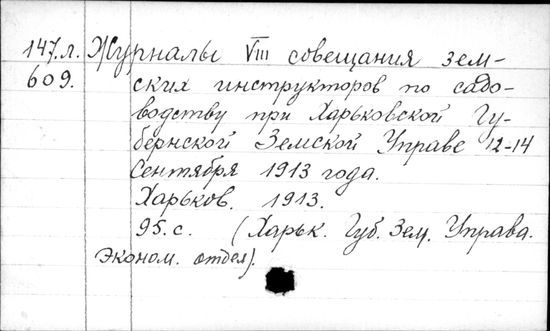 147.л. Журналы VIII совещания зем-
609. ских инструкторов по садо-
водству при Харьковской Гу-
бернской Земской Управе 12-14
Сентября 1913 года.
Харьков. 1913.
95. с. (Харьк. Губ. Зем. Управа.
Эконом. отдел).